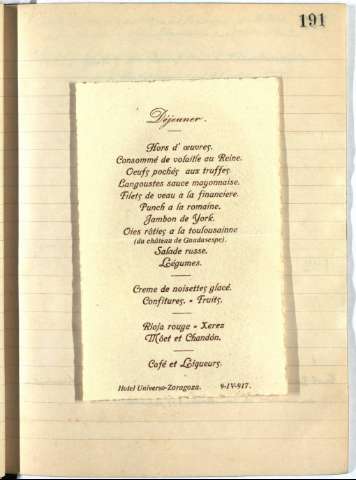 191
Déjeuner.
Hors d' œuvres.
Consommé de volaille au Reine.
Oeufs pochés aux truffes
Langoustes sauce mayonnaise.
Filets de veau à la financiere.
Punch a la romaine.
Jambon de York.
Oies rôties a la toulousainne
(du château de Guadasespe).
Salade russe.
Légumes.
Creme de noisettes glacé.
Confitures. - Fruits.
Rioja rouge - Xerez
Móet et Chandón.
Café et Liqueurs.
Hotel Universo-Zaragoza. 9-IV-917.